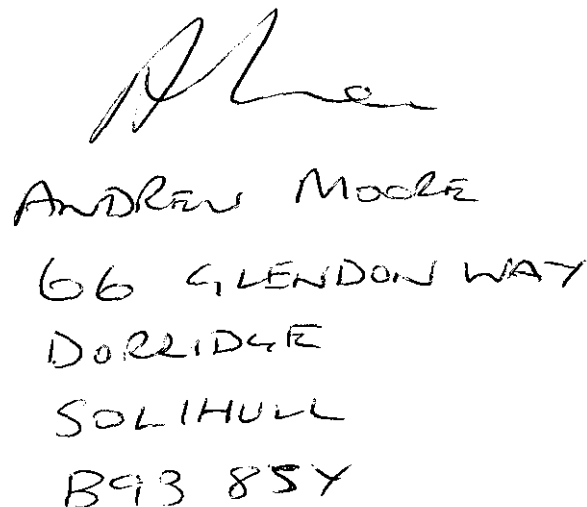 ANDREW MOORE
66 GLENDON WAY
DORRIDGE
SOLIHULL
B93 8SY